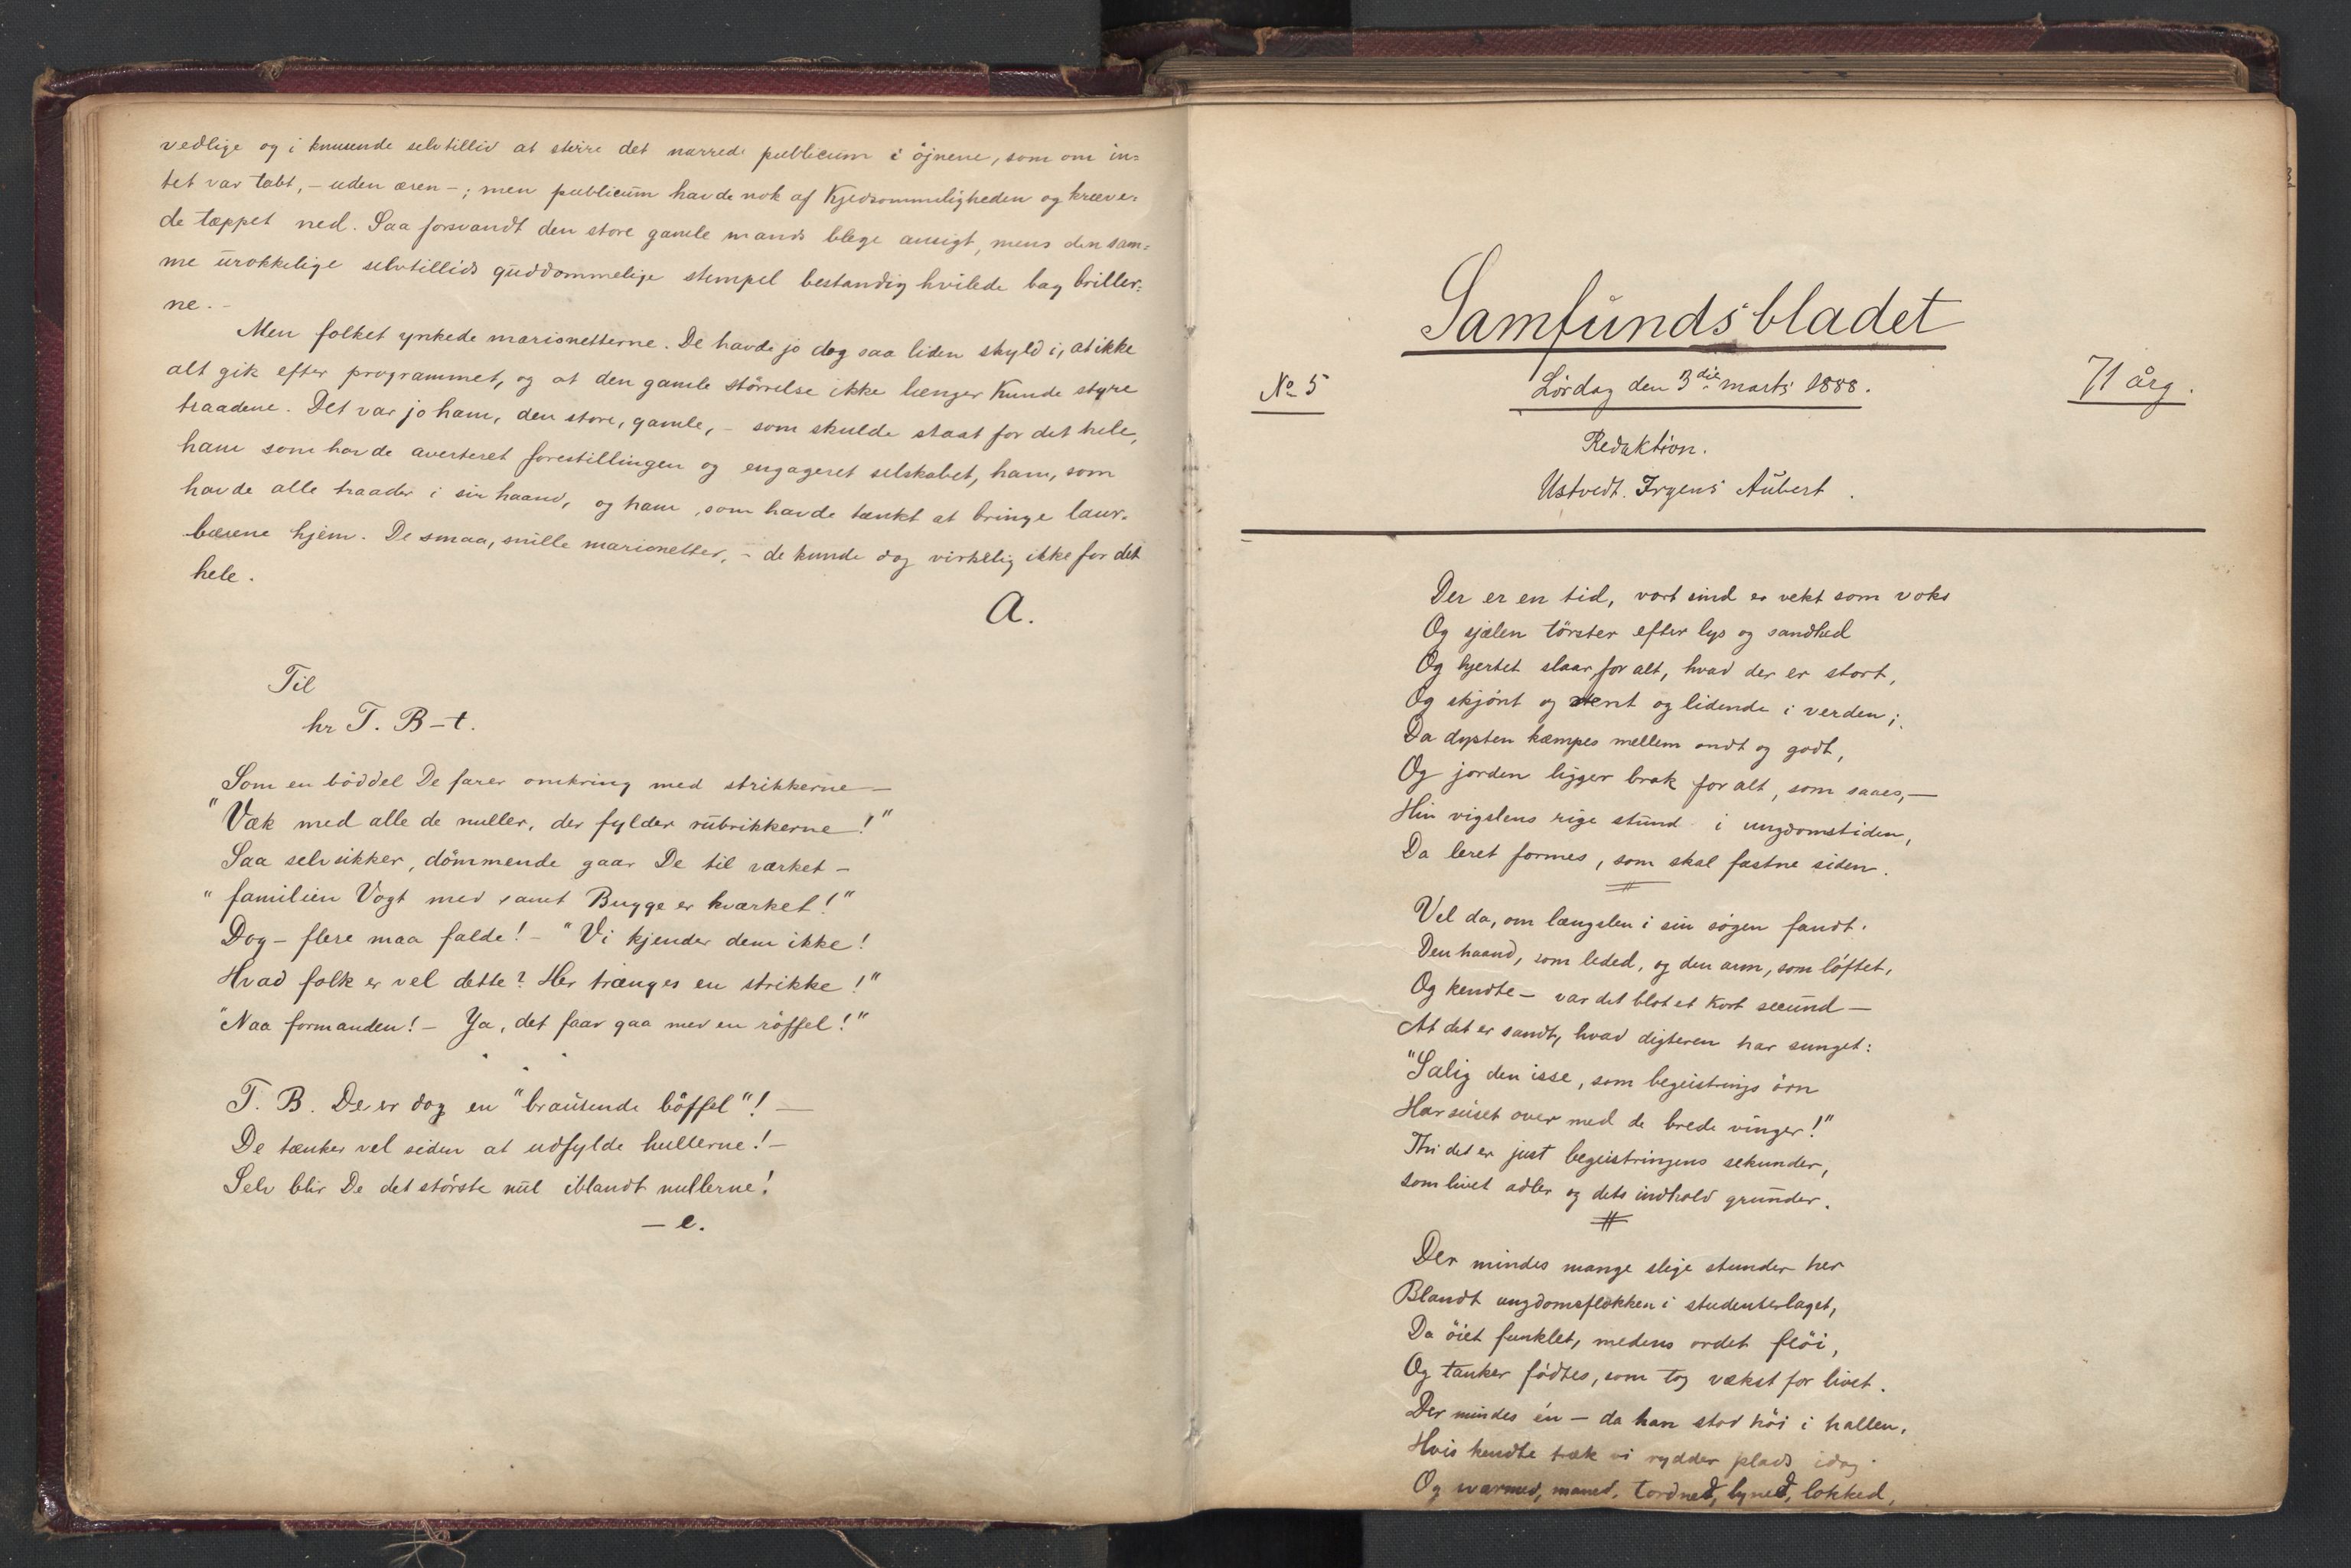 vedlige og i knusende selvtillid at stirre det narrede publicum i öjnene, som om in=
tet var tabt, – uden æren –; men publicum havde nok af Kjedsommeligheden og kræve=
de tæppet ned. Saa forsvandt den store gamle mands blege ansigt, mens den sam=
me urokkelige selvtillids guddommelige stempel bestandig hvilede bag briller=
ne. –
Men folket ynkede marionetterne. De havde jo dog saa liden skyld i, at ikke
alt gik efter programmet, og at den gamle störrelse ikke længer kunde styre
traadene. Det var jo ham, den store, gamle, – som skulde staat for det hele,
ham som havde averteret forestillingen og engageret selskabet, ham, som
havde alle traader i sin haand, og ham, som havde tænkt at bringe laur=
bærene hjem. De smaa, snille marionetter, – de kunde dog virkelig ikke for det
hele.
A.
Til
hr T. B–t.
Som en böddel De farer omkring med strikkerne –
"Væk med alle de nuller, der fylder rubrikkerne!"
Saa selvsikker, dömmende gaar De til værket –
"familien Vogt med samt Bugge er kværket!"
Dog – flere maa falde! – "Vi kjender dem ikke!
Hvad folk er vel dette? Her trænges en strikke!"
"Naa formanden! – Ja, det faar gaa med en röffel!"
T. B. De er dog en "brautende böffel"! –
De tænker vel siden at udfylde hullerne! –
Selv blir De det störste nul iblandt nullerne!
– e.
Samfundsbladet
No 5
Lördag den 3die marts 1888.
71 årg.
Redaktion.
Ustvedt. Irgens Aubert.
Der er en tid, vort sind er vekt som voks
Og sjælen törster efter lys og sandhed
Og hjertet slaar for alt, hvad der er stort,
Og skjönt og rent og lidende i verden;
Da dysten kæmpes mellem ondt og godt,
Og jorden ligger brak for alt, som saaes, –
Hin vigslens rige stund i ungdomstiden,
Da leret formes, som skal fastne siden.
Vel da, om længslen i sin sögen fandt
Den haand, som leded, og den arm, som löftet,
Og kendte – var det blot et kort secund –
At det er sandt, hvad digteren har sunget:
"Salig den isse, som begeistrings örn
Har suset over med de brede vinger!"
Thi det er just begeistringens sekunder,
som livet adler og dets indhold grunder.
Der mindes mange slige stunder her
Blandt ungdomsflokken i studenterlaget,
Da öiet funklet, medens ordet flöi,
Og tanker födtes, som tog vækst for livet.
Der mindes én – da han stod höi i hallen,
Hvis kendte træk vi rydder plads idag
Og varmed, maned, tordned, lyned, lokked,